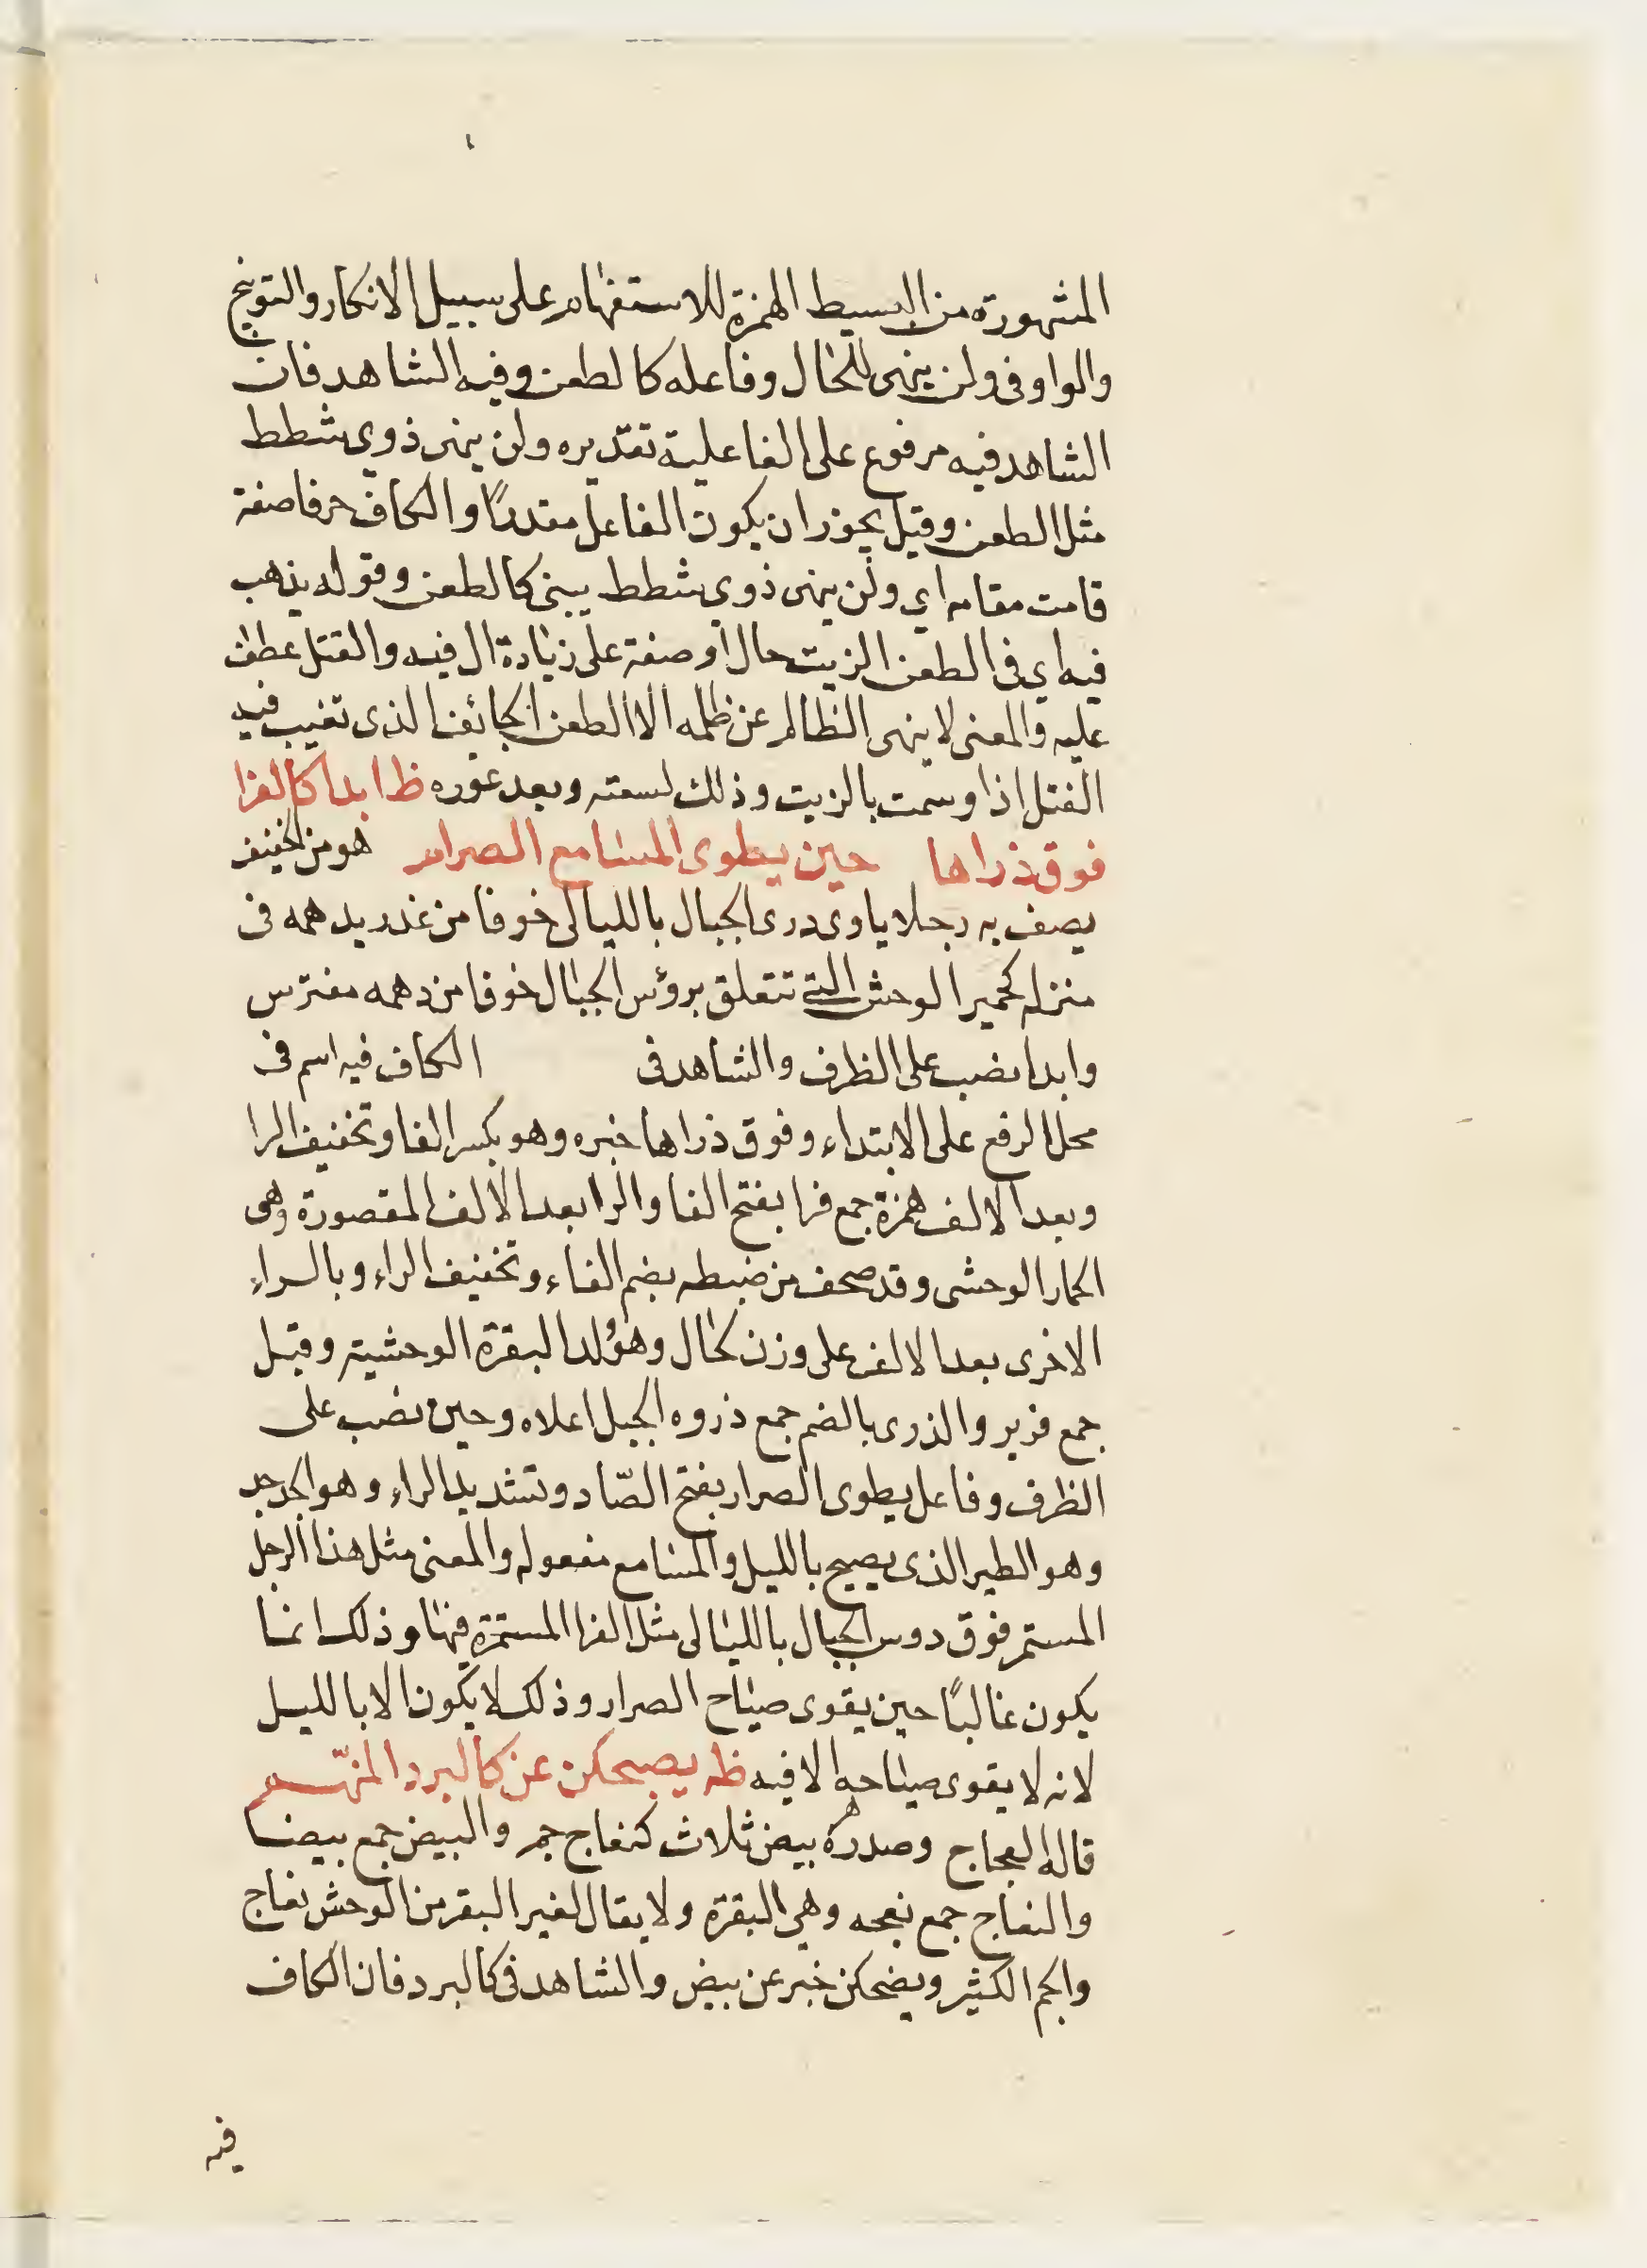 المشهورة من البسيط الهمزة للاستفهام على سبيل الانكار والتوبيخ
والواو فى ولن ينهى للحال وفاعله كالطعن وفيه الشاهد فان
الشاهد فيه مرفوع على الفاعلية تقديره ولن ينهى ذوى شطط
مثل الطعن وقيل يجوز ان يكون الفاعل مقدرًا والكاف حرفا صفة
قامت مقامه اي ولن ينهى ذوي شطط يبنى كالطعن وقوله يذهب
فيه اي فى الطعن الزيت حال او صفة على زيادة ال فيه والقتل عطف
عليه والمعنى لا ينهى الظالم عن ظلمه الا الطعن الجائف الذى تغيب فيه
الفتل اذا وسمت بالزيت وذلك لسعته وبعد غوره ظ ابدا كالفرا
فوق ذراها حين يطوى المسامع الصرار هو من الخفيف
يصف به رجلا ياوى درى الجبال بالليالى خوفا من غدر يدهمه فى
منزله كحمير الوحش التى تتعلق برؤس الجبال خوفا من دهمه مفترس
وابدا نصب على الظرف والشاهد فى الكاف فيه اسم فى
محل الرفع على الابتداء وفوق ذراها خبره وهو بكسر الفا وتخفيف الرا
وبعد الالف همزة جمع فرا بفتح الفا والرا بعد الالف المقصورة وهى
الحمار الوحشى وقد صحف من ضبطه بضم الفاء وتخفيف الراء وبالراء
الاخرى بعد الالف على وزن كحال وهو ولد البقرة الوحشية وقيل
جمع فرير والذرى بالضم جمع ذروه الجبل اعلاه وحين نصب على
الظرف وفاعل يطوى الصرار بفتح الصّاد وتشديد الراء وهو الجدجد
وهو الطير الذى يصيح بالليل والمسامع مفعوله والمعنى مثل هذا الرجل
المستمر فوق دوس الجبال بالليالى مثل الفرا المستمرة فيها وذلك انما
يكون غالبًا حين يقوى صياح الصرار وذلك لا يكون الا بالليل
لانه لا يقوى صياحه الا فيه ظه يصبحكن عن كالبرد المنهّم
قاله العجاج وصدره بيض ثلاث كنعاج جم والبيض جمع بيضا
والنعاج جمع نعجه وهي البقرة ولا يقال لغير البقر من الوحش نعاج
والجم الكثير ويضحكن خبر عن بيض والشاهد فى كالبرد فان الكاف
فيه